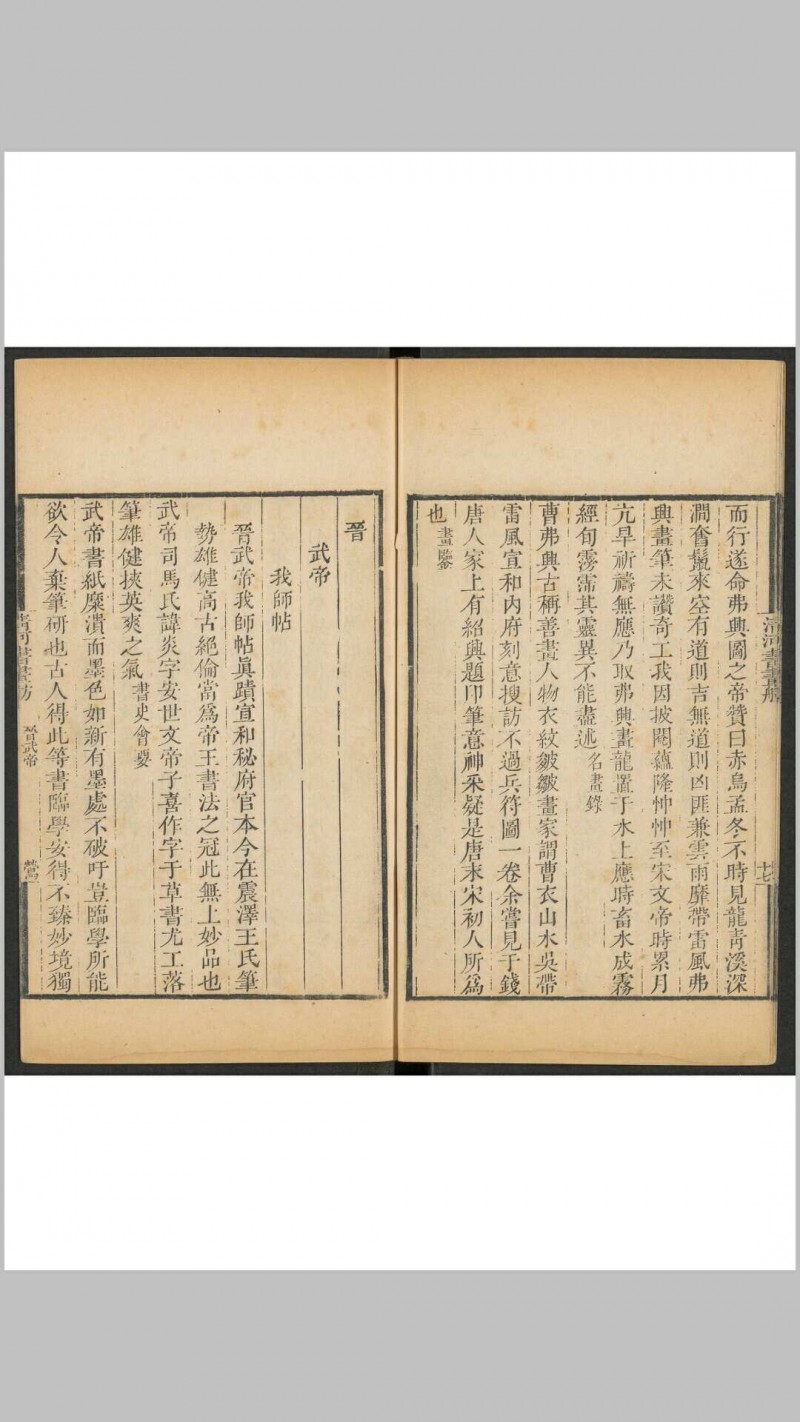 清河書畫舫
十七
而行遂命弗興圖之帝贊曰赤烏孟冬不時見龍青溪深
澗奮鬛來空有道則吉無道則凶匪兼雲雨靡帶雷風弗
興畫筆未讃奇工我因披閱蘊隆忡忡至宋文帝時累月
亢旱祈禱無應乃取弗興畫龍置于水上應時畜水成霧
經旬霶霈其靈異不能盡述名畫錄
曹弗興古稱善畫人物衣紋皴皺畫家謂曹衣山水吳帶
雷風宣和内府刻意搜訪不過兵符圖一卷余嘗見于錢
唐人家上有紹興題印筆意神采疑是唐末宋初人所爲
也畫鑒
晉
武帝
我師帖
晉武帝我師帖眞蹟宣和秘府官本今在震澤王氏筆
勢雄健高古絕倫當爲帝王書法之冠此無上妙品也
武帝司馬氏諱炎字安世文帝子喜作字于草書尤工落
筆雄健挾英爽之氣書史會要
武帝書紙糜潰而墨色如新有墨處不破吁豈臨學所能
欲令人棄筆研也古人得此等書臨學安得不臻妙境獨
清河書畫舫
晉武帝
鶯